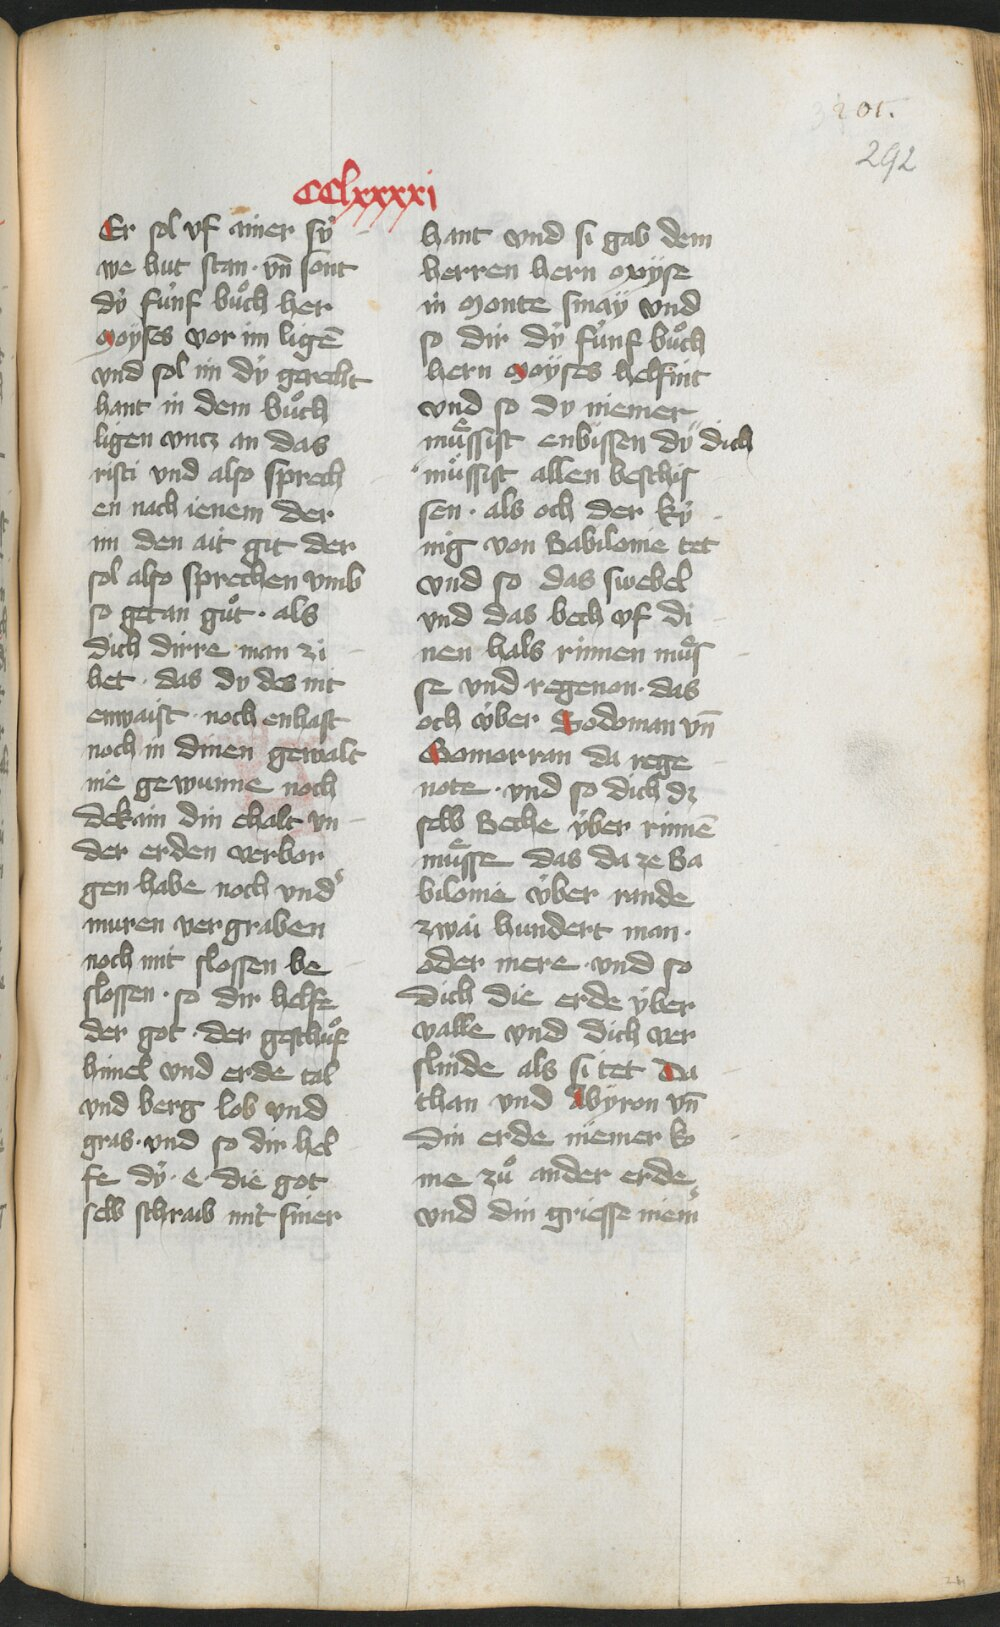 201.
292
CClxxxxi
Er sol vf ainer sv̍
we hut stan · vn̄ sont
dÿ fúnf bůch her
Moÿses vor im ligē
vnd sol im dÿ gerecht
hant in dem bůch
ligen vntz an das
risti vnd also sprech
en nach ienem der
im den ait git der
sol also sprechen vmb
so getan gůt · als
dich dirre man zi
het · das dv des nit
enwaist · noch enhast
noch in dinen gewalt
nie gewunne noch
dekain din ehalt vn
der erden verbor
gen habe noch vnd͛
muren vergraben
noch mit slossen be
slossen · so dir helfe
der got · der geschůf
himel vnd erde tal
vnd berg lob vnd
gras · vnd so dir hel
fe dÿ · e · die got
selb schraib mit siner
hant vnd si gab dem
herren hern moÿse
in Monte sinaÿ vnd
so dir dÿ fúnf bůch
hern Moÿses helfint
vnd so dv niemer
mu̍ssist enbissen dv̍ dich
mu̍ssist allen beschis
sen · als och der kv̍
nig von Babilonie tet
vnd so das swebel
vnd das bech vf di
nen hals rinnen mu̍s
se vnd regenon · das
och v̍ber Sodoman vn̄
Gomorran da rege
note · vnd so dich dz
selb Beche v̍ber rinnē
mu̍sse das da ze Ba
bilonie v̍ber rande
zwai hundert man ·
oder mere · vnd so
dich die erde v̍ber
valle vnd dich ver
slinde als si tet Da
than vnd Abÿron vn̄
din erde niemer ko
me zů ander erde
vnd din griesse niem͛